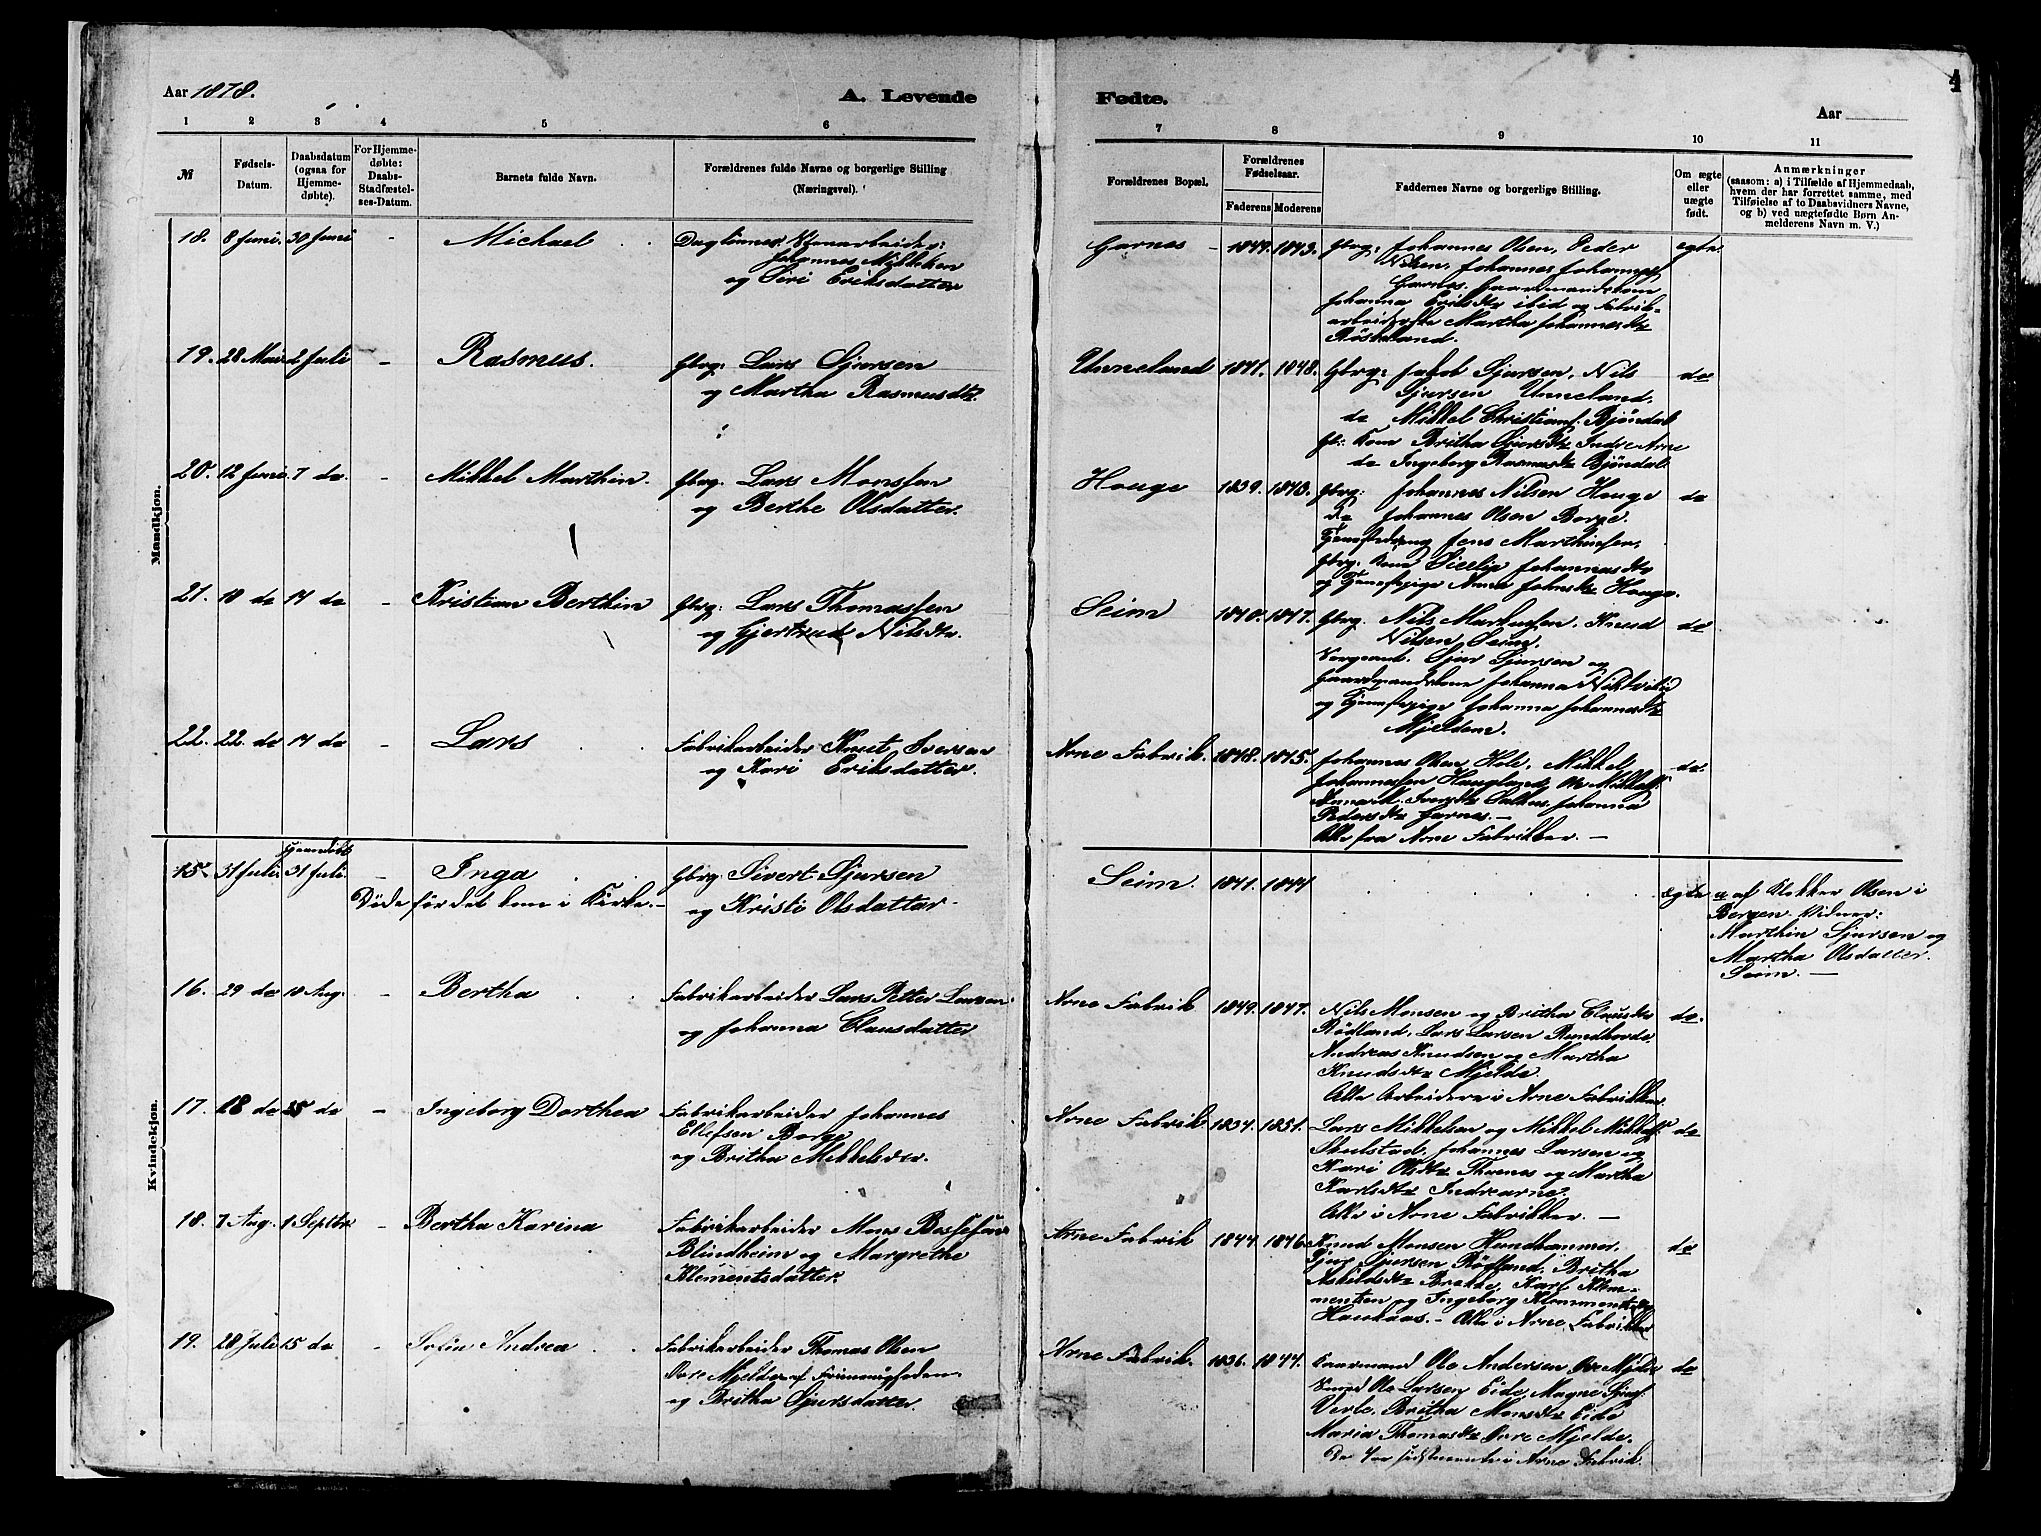 Aar 1878.
A. Levende
Fødte.
Aar
4
1 2 3 4 5 6
7 8 9 10 11
№
Fødsels-
Datum.
Daabsdatum
(ogsaa for
Hjemme-
døbte).
For Hjemme-
døbte:
Daabs-
Stadfæstel-
ses-Datum.
Barnets fulde Navn.
Forældrenes fulde Navne og borgerlige Stilling
(Næringsvei).
Forældrenes Bopæl.
Forældrenes
Fødselsaar.
Faderens Moderens
Faddernes Navne og borgerlige Stilling.
Om ægte
eller
uægte
født.
Anmærkninger
(saasom: a) i Tilfælde af Hjemmedaab,
hvem der har forrettet samme, med
Tilføielse af to Daabsvidners Navne,
og b) ved uægtefødte Børn An-
melderens Navn m. V.)
Mandkjøn.
18. 8 Juni. 30 Juni - Michael
Daglønner, Stenarbeider:
Johannes Mikkelsen
og Siri Eriksdatter
Garnes - 1849. 1843.
Gbrg: Johannes Olsen, Peder
Nilsen, Johannes Johannes
Garnes, Gaardmandskone
Johanna Eriksdtr ibid og Fabrik-
Martha Johannesdtr
Røseland.
egte.
19. 28 Mai 2 Juli - Rasmus.
Gbrg: Lars Sjursen
og Martha Rasmusdtr.
Unneland 1841. 1848.
Gbrg: Jakob Sjursen, Nils
Sjursen Unneland,
do Mikkel Christians. Bjøndal
Gb: Kone Britha Sjursdtr Indre Arne
do Ingeborg Rasmusdtr Bjøndal.
do
20. 12 Juni. 7 do - Mikkel Marthin.
Gbrg. Lars Monssen
og Berthe Olsdatter.
Houge 1839. 1843.
Gbrg: Johannes Nilsen Houge
do Johannes Olsen Borge.
Jens Marthinsen,
Gbrg. Kone Johannesdtr
og Tjenestepige Anna Johnsdtr Houge.
do
21. 18 do 14 do - Kristian Berthin
Gbrg: Lars Thomassen
og Gjertrud Nilsdtr.
Seim 1840. 1847.
Gbrg. Nils Markussen, Knud
Nilsen Seim.
Sergeant. Sjur Sjursen og
Gaardmandskone Johanna Nilsdtr ibid
og Tjenestepige Johanna Johannesdtr
Mjeldem.
do
22. 22. do 14 do - Lars
Fabrikarbeider Knut Iversen
og Kari Eriksdatter.
Arne Fabrik. 1848. 1845.
Johannes Olsen Hole, Mikkel
Johannesen Haugland, Ole Mikkels.
Anna M. Iversdtr Johanna
Pedersdtr Garnes. -
Alle fra Arne Fabrikker. -
do.
Kvindekjøn.
15. 31 Juli. Hjemdøbt 31 Juli. - Inga
Døde før det kom i Kirke. -
Gbrg: Sivert Sjursen
og Kristi Olsdatter.
Seim. 1841. 1844
egte
a af Klokker Olsen i
Bergen. Vidner:
Marthin Sjursen og
Martha Olsdatter
Seim. -
16. 29 do 18 Aug. - Bertha
Fabrikarbeider Lars Petter Larsen
og Johanna Clausdatter
Arne Fabrik 1849. 1847.
Nils Monsen og Britha Clausdtr
Rødland, Lars Larsen Rundhovde,
Andreas Knudsen og Martha
Knudsdtr Mjelde.
Alle Arbeidere i Arne Fabrikker.
do.
17. 28 do 25 do - Ingeborg Dorthea
Fabrikarbeider Johannes
Ellefsen Borge
og Britha Mikkelsdtr.
Arne Fabrik 1834. 1851.
Lars Mikkelsen og Mikkel Mikkels.
Skulstad, Johannes Larsen og
Kari Olsdtr Thrones og Martha
Karlsdtr Indrearne.
Alle i Arne Fabrikker. -
do
18. 7 Aug. 1 Septbr - Bertha Karina
Fabrikarbeider Mons
Blindheim og Margrethe
Klementsdatter
Arne Fabrik 1844. 1846.
Knud Monsen Hundhammer,
Sjur Sjursen Rødland, Britha
Askildsdtr Brekke, Karl Klem-
mentsen og Ingeborg Klemmentsdtr
Haukaas. - Alle i Arne Fabrikker
do
19. 28 Juli 15 do - Sofie Andrea
Fabrikarbeider Thomas Olsen
Øvre Mjelde af Frimenigheden
og Britha Sjursdatter
Arne Fabrik. 1836. 1844.
Gaarmand Ole Andersen Øvre Mjelde
Smed Ole Larsen Eide, Magne
Verle, Britha Monsdtr Eide
Maria Thomasdtr Øvre Mjelde.
De 4 sidstnævnte i Arne Fabrik.
do